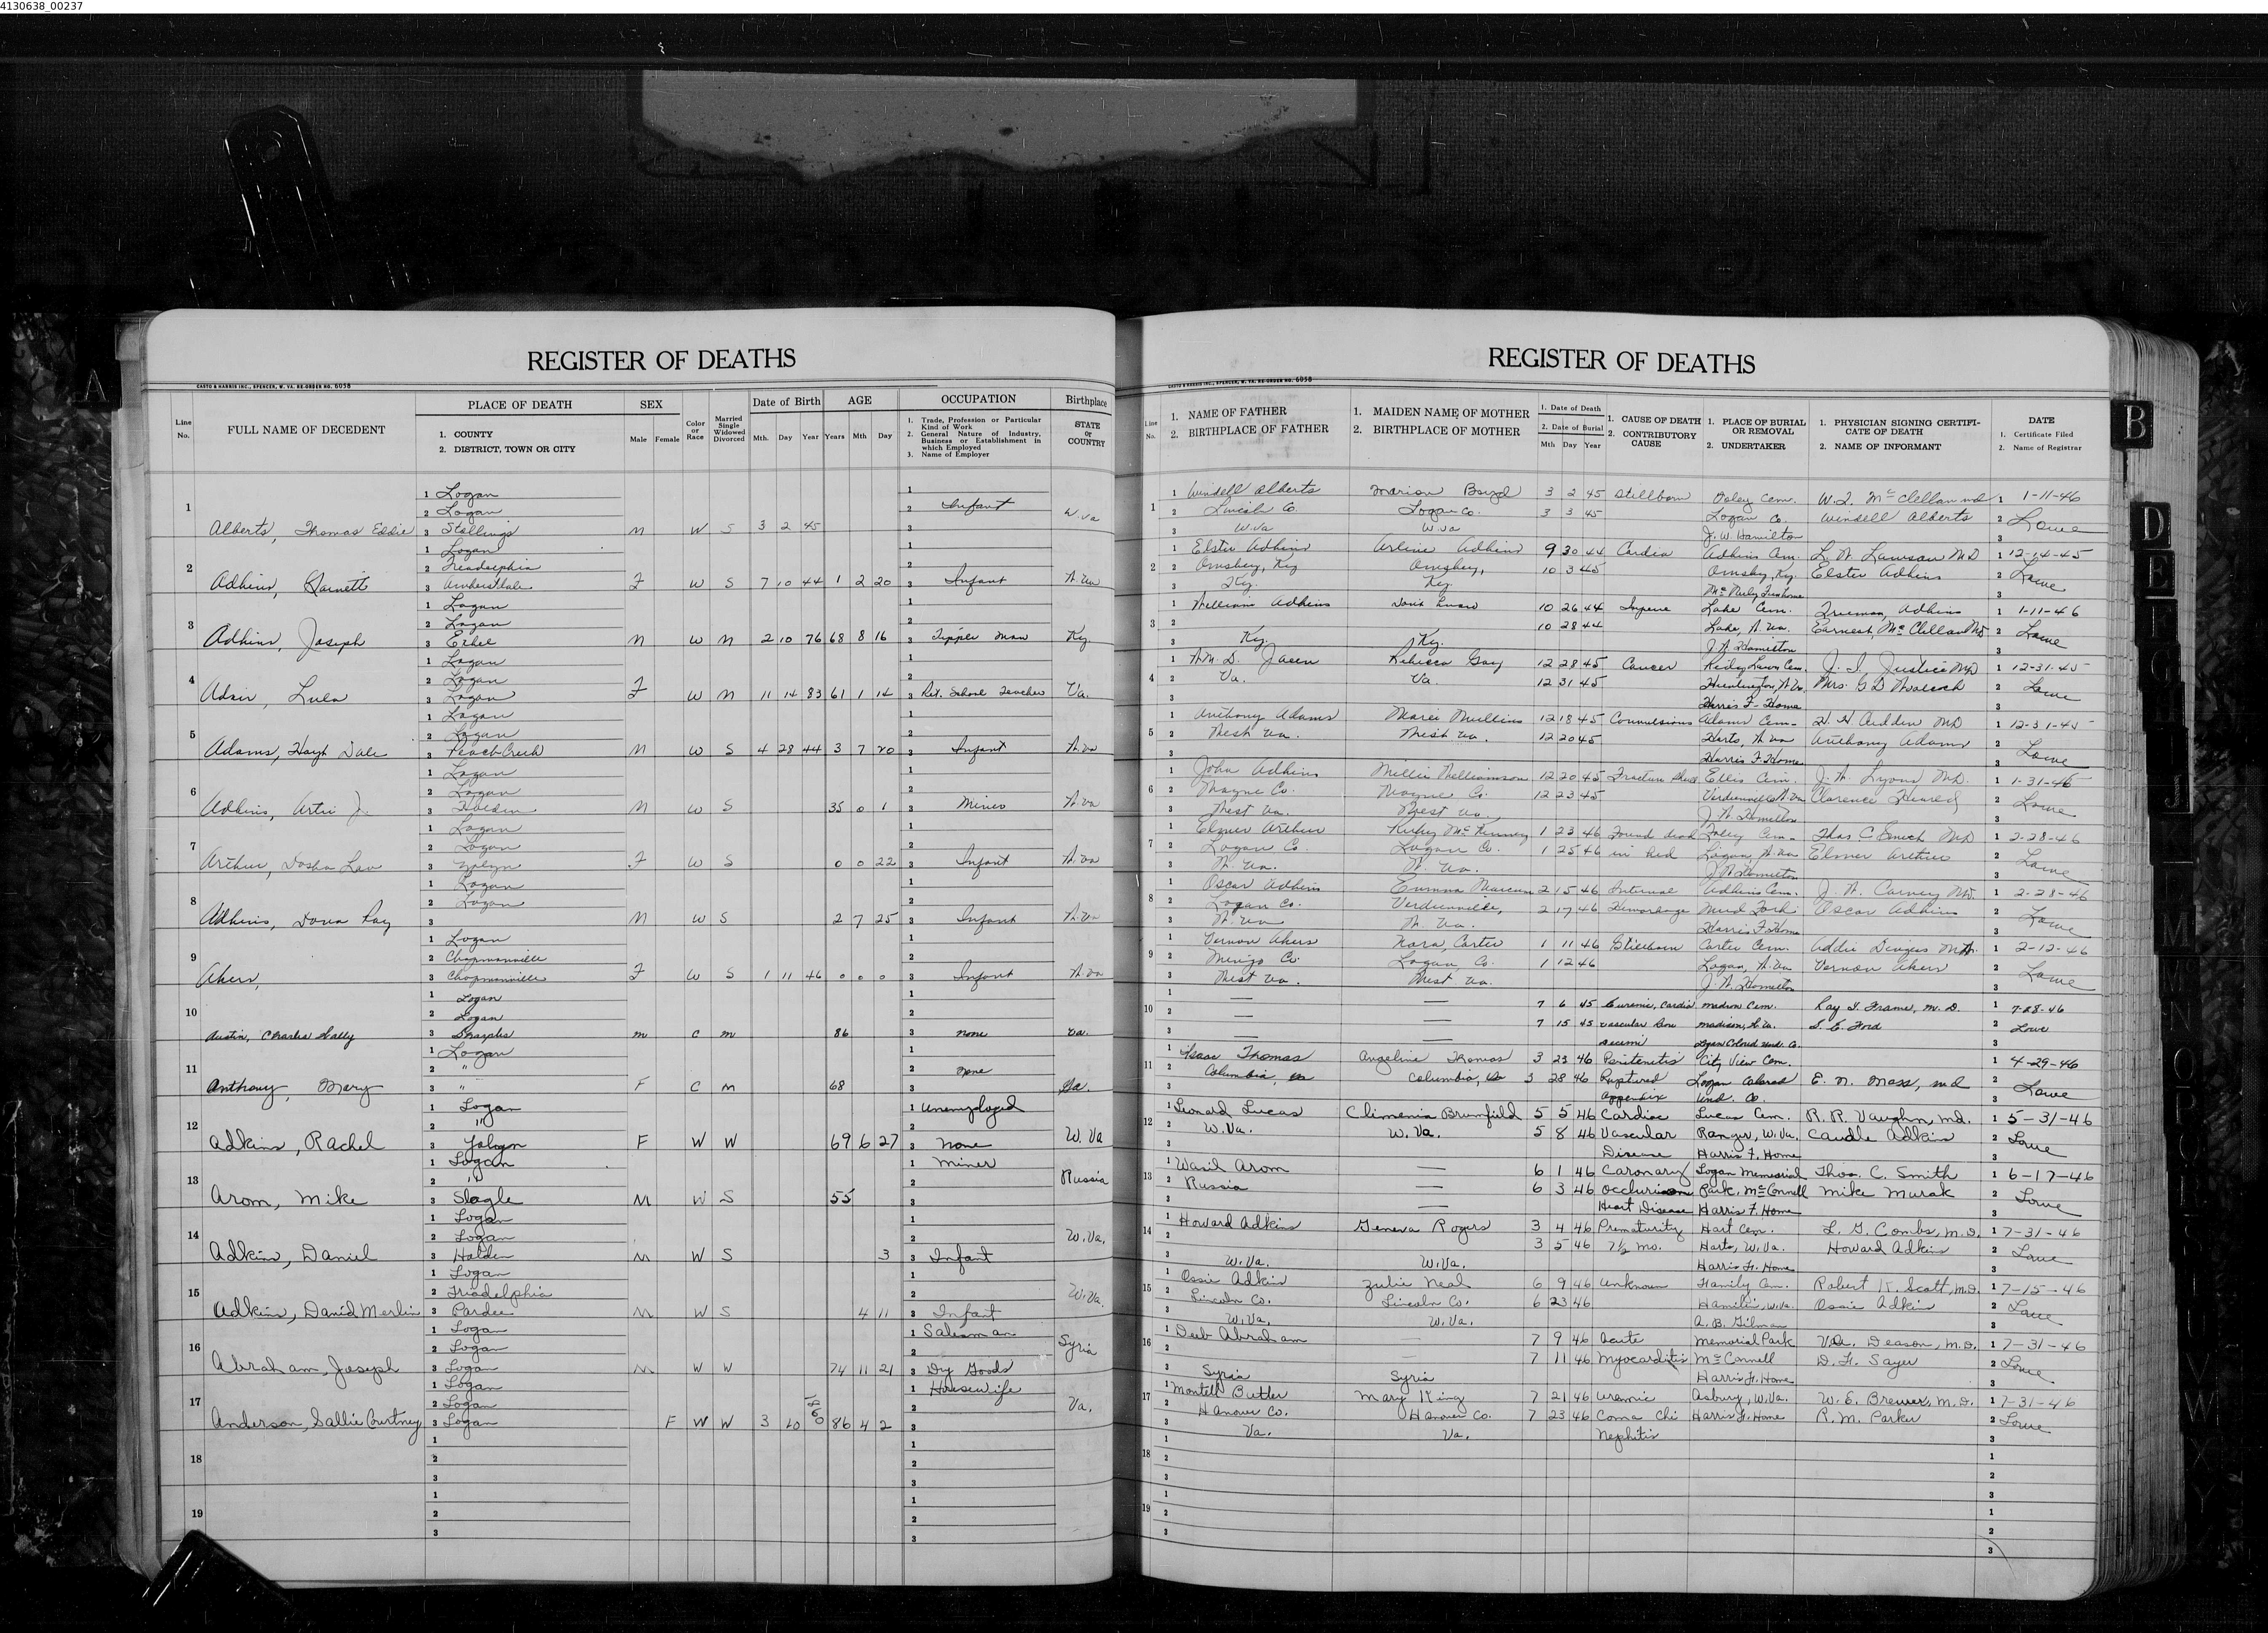 4130638_00237
REGISTER OF DEATHS
CASTO & HARRIS INC., SPENCER, W. VA. RE-ORDER NO. 6058
Line No.
FULL NAME OF DECEDENT
PLACE OF DEATH
1. COUNTY
2. DISTRICT, TOWN OR CITY
SEX
Male Female
Color or Race
Married Single Widowed Divorced
Date of Birth
Mth. Day Year
AGE
Years Mth Day
OCCUPATION
1. Trade, Profession or Particular Kind of Work
2. General Nature of Industry, Business or Establishment in which Employed
3. Name of Employer
Birthplace
STATE or COUNTRY
1 Logan
2 Logan Infant W. Va
1 Alberts, Thomas Eddie 3 Stallings M W S 3 2 45
1 Logan
2 Triadelphia
2 Adkins, Garnett 3 Amherstdale F W S 7 10 44 1 2 20 Infant W. Va
1 Logan
2 Logan
3 Adkins, Joseph 3 Ethel M W M 2 10 76 68 8 16 Tipper man Ky.
1 Logan
2 Logan
4 Adair, Lula 3 Logan F W M 11 14 83 61 1 14 Ret. School Teacher Va.
1 Logan
2 Logan
5 Adams, Dale 3 Peach Creek M W S 4 28 44 3 7 20 Infant W. Va
1 Logan
2 Logan
6 Adkins, Artie J. 3 Holden M W S 35 0 1 Miner W. Va
1 Logan
2 Logan
7 Arthur, Dosha 3 F W S 0 0 22 Infant W. Va
1 Logan
2 Logan
8 Adkins, Ray 3 M W S 2 7 25 Infant W. Va
1 Logan
2 Chapmanville
9 Akers, 3 Chapmanville F W S 1 11 46 0 0 0 Infant W. Va
1 Logan
2 Logan
10 Austin, Charles 3 Sharples M C M 86 none Va.
1 Logan
2 " none
11 Anthony, Mary 3 " F C M 68
1 Logan Unemployed
2 " W. Va
12 Adkins, Rachel 3 Yolyn F W W 69 6 27 None
1 Logan Miner
2 " Russia
13 Arom, Mike 3 Slagle M W S 55
1 Logan
2 Logan W. Va.
14 Adkins, Daniel 3 Holden M W S 3 Infant
1 Logan
2 Triadelphia W. Va.
15 Adkins, David Merlin 3 Pardee M W S 4 11 Infant
1 Logan Salesman
2 Logan Syria
16 Abraham, Joseph 3 Logan M W W 74 11 21 Dry Goods
1 Logan Housewife
2 Logan Va.
17 Anderson, Sallie Courtney 3 Logan F W W 3 10 1860 86 4 2
18
19
REGISTER OF DEATHS
CASTO & HARRIS INC., SPENCER, W. VA. RE-ORDER NO. 6058
Line No.
1. NAME OF FATHER
2. BIRTHPLACE OF FATHER
1. MAIDEN NAME OF MOTHER
2. BIRTHPLACE OF MOTHER
1. Date of Death
2. Date of Burial
Mth Day Year
1. CAUSE OF DEATH
2. CONTRIBUTORY CAUSE
1. PLACE OF BURIAL OR REMOVAL
2. UNDERTAKER
1. PHYSICIAN SIGNING CERTIFICATE OF DEATH
2. NAME OF INFORMANT
DATE
1. Certificate Filed
2. Name of Registrar
1 Windell Alberts Marion Boyd 3 2 45 Stillborn Cem. McClellan MD 1-11-46
Lincoln Co. Logan Co. 3 3 45 Logan Co. Windell Alberts Lowe
W. Va W. Va J. W. Hamilton
2 Elster Adkins Arline Adkins 9 30 44 Adkins Cem. Lawson MD 12-14-45
Ornsby, Ky Ornsby, 10 3 45 Ornsby, Ky. Elster Adkins Lowe
Ky. Ky.
3 William Adkins Don't know 10 26 44 Lake Cem. Adkins 1-11-46
10 28 44 Lake, W. Va. Earnest McClellan MD Lowe
Ky. Ky. J. W. Hamilton
4 Wm. D. Rebecca Gay 12 28 45 Cancer Ridge Lawn Cem. Justice MD 12-31-45
Va. Va. 12 31 45 Huntington, W. Va. Mrs. G D Lowe
Harris F. Home
5 Anthony Adams Mullins 12 18 45 Convulsions Adams Cem. MD 12-31-45
West Va. West Va. 12 20 45 Harts, W. Va Anthony Adams Lowe
Harris F. Home
6 John Adkins Millie Williamson 12 20 45 Fracture Ellis Cem. Lyons MD. 1-31-46
Wayne Co. Wayne Co. 12 23 45 Verdunville W. Va Clarence Lowe
West Va. West Va. J. W. Hamilton
7 Elmer Arthur Ruby McKinney 1 23 46 Found dead Cem. Thos C Smith MD 2-28-46
Logan Co. Logan Co. 1 25 46 in bed Logan, W. Va Elmer Arthur Lowe
W. Va. W. Va. J. W. Hamilton
8 Oscar Adkins Emma Marcum 2 15 46 Internal Adkins Cem. J. W. Carney MD. 2-28-46
Logan Co. Verdunville, 2 17 46 Hemorhage Mud Fork Oscar Adkins Lowe
W. Va W. Va. Harris F. Home
9 Vernon Akers Nora Carter 1 11 46 Stillborn Carter Cem. Addie 2-12-46
Mingo Co. Logan Co. 1 12 46 Logan, W. Va Vernon Akers Lowe
West Va. West Va. J. W. Hamilton
10 — — 7 6 45 Uremic, Cardio Madison Cem. Ray Frame, M. D. 7-28-46
— — 7 15 45 vascular Madison, W. Va. Ford Lowe
— — Logan Colored Und. Co.
11 Isaac Thomas Angeline Thomas 3 23 46 Peritenitis City View Cem. 4-29-46
Columbia, Columbia, 3 28 46 Ruptured Logan Colored E. N. Moss, MD Lowe
Appendix Und. Co.
12 Leonard Lucas Climenia Brumfield 5 5 46 Cardiac Lucas Cem. R. R. Vaughn, MD. 5-31-46
W. Va. W. Va. 5 8 46 Vascular Ranger, W. Va. Caudle Adkins Lowe
Disease Harris F. Home
13 Wasil Arom — 6 1 46 Caronary Logan Memorial Thos. C. Smith 6-17-46
Russia — 6 3 46 Park, McConnell Mike Murak Lowe
— — Heart Disease Harris F. Home
14 Howard Adkins Geneva Rogers 3 4 46 Prematurity Hart Cem. L. G. Combs, M.D. 7-31-46
3 5 46 7½ mo. Harts, W. Va. Howard Adkins Lowe
W. Va. W. Va. Harris F. Home
15 Ossie Adkin Zulie Neal 6 9 46 Unknown Family Cem. Robert K. Scott, M.D. 7-15-46
Lincoln Co. Lincoln Co. 6 23 46 Hamlin, W. Va. Ossie Adkin Lowe
W. Va. W. Va. A. B. Gilman
16 Deeb Abraham — 7 9 46 Acute Memorial Park Deason, M.D. 7-31-46
— 7 11 46 Myocarditis McConnell D. F. Sayer Lowe
Syria Syria Harris F. Home
17 Montell Butler Mary King 7 21 46 Uremic Asbury, W. Va. W. E. Brewer, M.D. 7-31-46
Hanover Co. Hanover Co. 7 23 46 Coma Chi Harris F. Home R. M. Parker Lowe
Va. Va. Nephitis
18
19
B
D
E